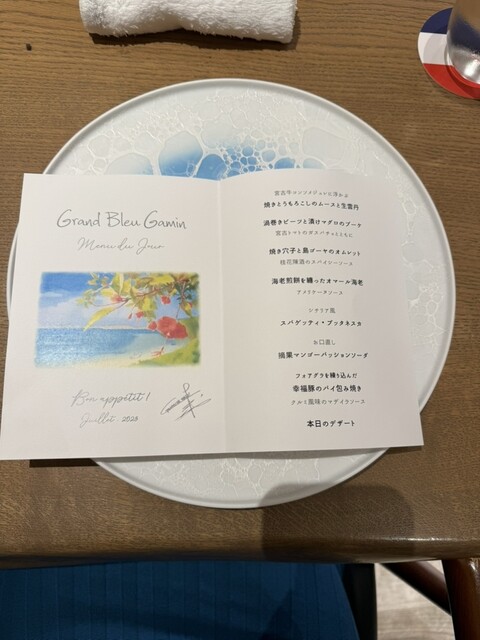 Grand Bleu Gamin
Menu du Jour
Bon appétit !
Juillet · 2023
宮古牛コンソメジュレに浮かぶ
焼きとうもろこしのムースと生雲丹
渦巻きビーツと漬けマグロのブーケ
宮古トマトのガスパチョとともに
焼き穴子と島ゴーヤのオムレット
桂花陳酒のスパイシーソース
海老煎餅を纏ったオマール海老
アメリケーヌソース
シチリア風
スパゲッティ・プッタネスカ
お口直し
摘果マンゴーパッションソーダ
フォアグラを練り込んだ
幸福豚のパイ包み焼き
クルミ風味のマデイラソース
本日のデザート